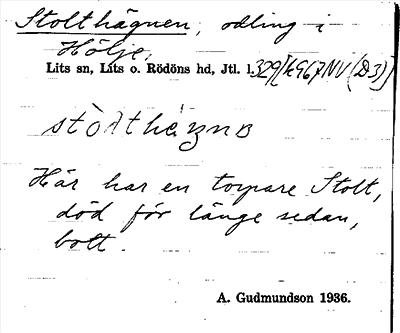 Stolthägnen, odling i
Hölje,
Lits sn, Lits o. Rödöns hd, Jtl. l.
Här har en torpare Stolt,
död för länge sedan,
bott.
A. Gudmundson 1936.